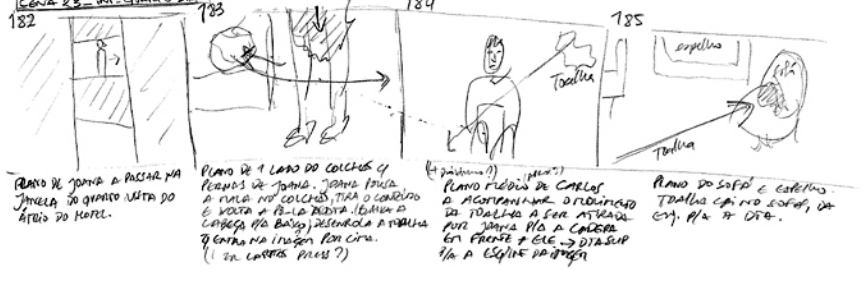 CENA 23_INT_QUARTO
182
183
184
185
espelho
sofá
Toalha
Toalha
PLANO DE JOANA A PASSAR NA
JANELA DO QUARTO VISTA DO
ÁTRIO DO HOTEL.
PLANO DE 1 LADO DO COLCHÃO C/
PERNAS DE JOANA. JOANA POUSA
A MALA NO COLCHÃO, TIRA O CONTEÚDO
E VOLTA A PÔ-LA DEITA. (BAIXA A
CABEÇA P/A BAIXO) DESENROLA A TOALHA
Q ENTRA NA IMAGEM POR CIMA.
PLANO MÉDIO DE CARLOS
A ACOMPANHAR O MOVIMENTO
DA TOALHA A SER ATIRADA
POR JOANA P/A A CADEIRA
EM FRENTE A ELE → DTA SUP
P/A A ESQ INF DA IMAGEM
PLANO DO SOFÁ E ESPELHO.
TOALHA CAI NO SOFÁ, DA
ESQ. P/A A DTA.